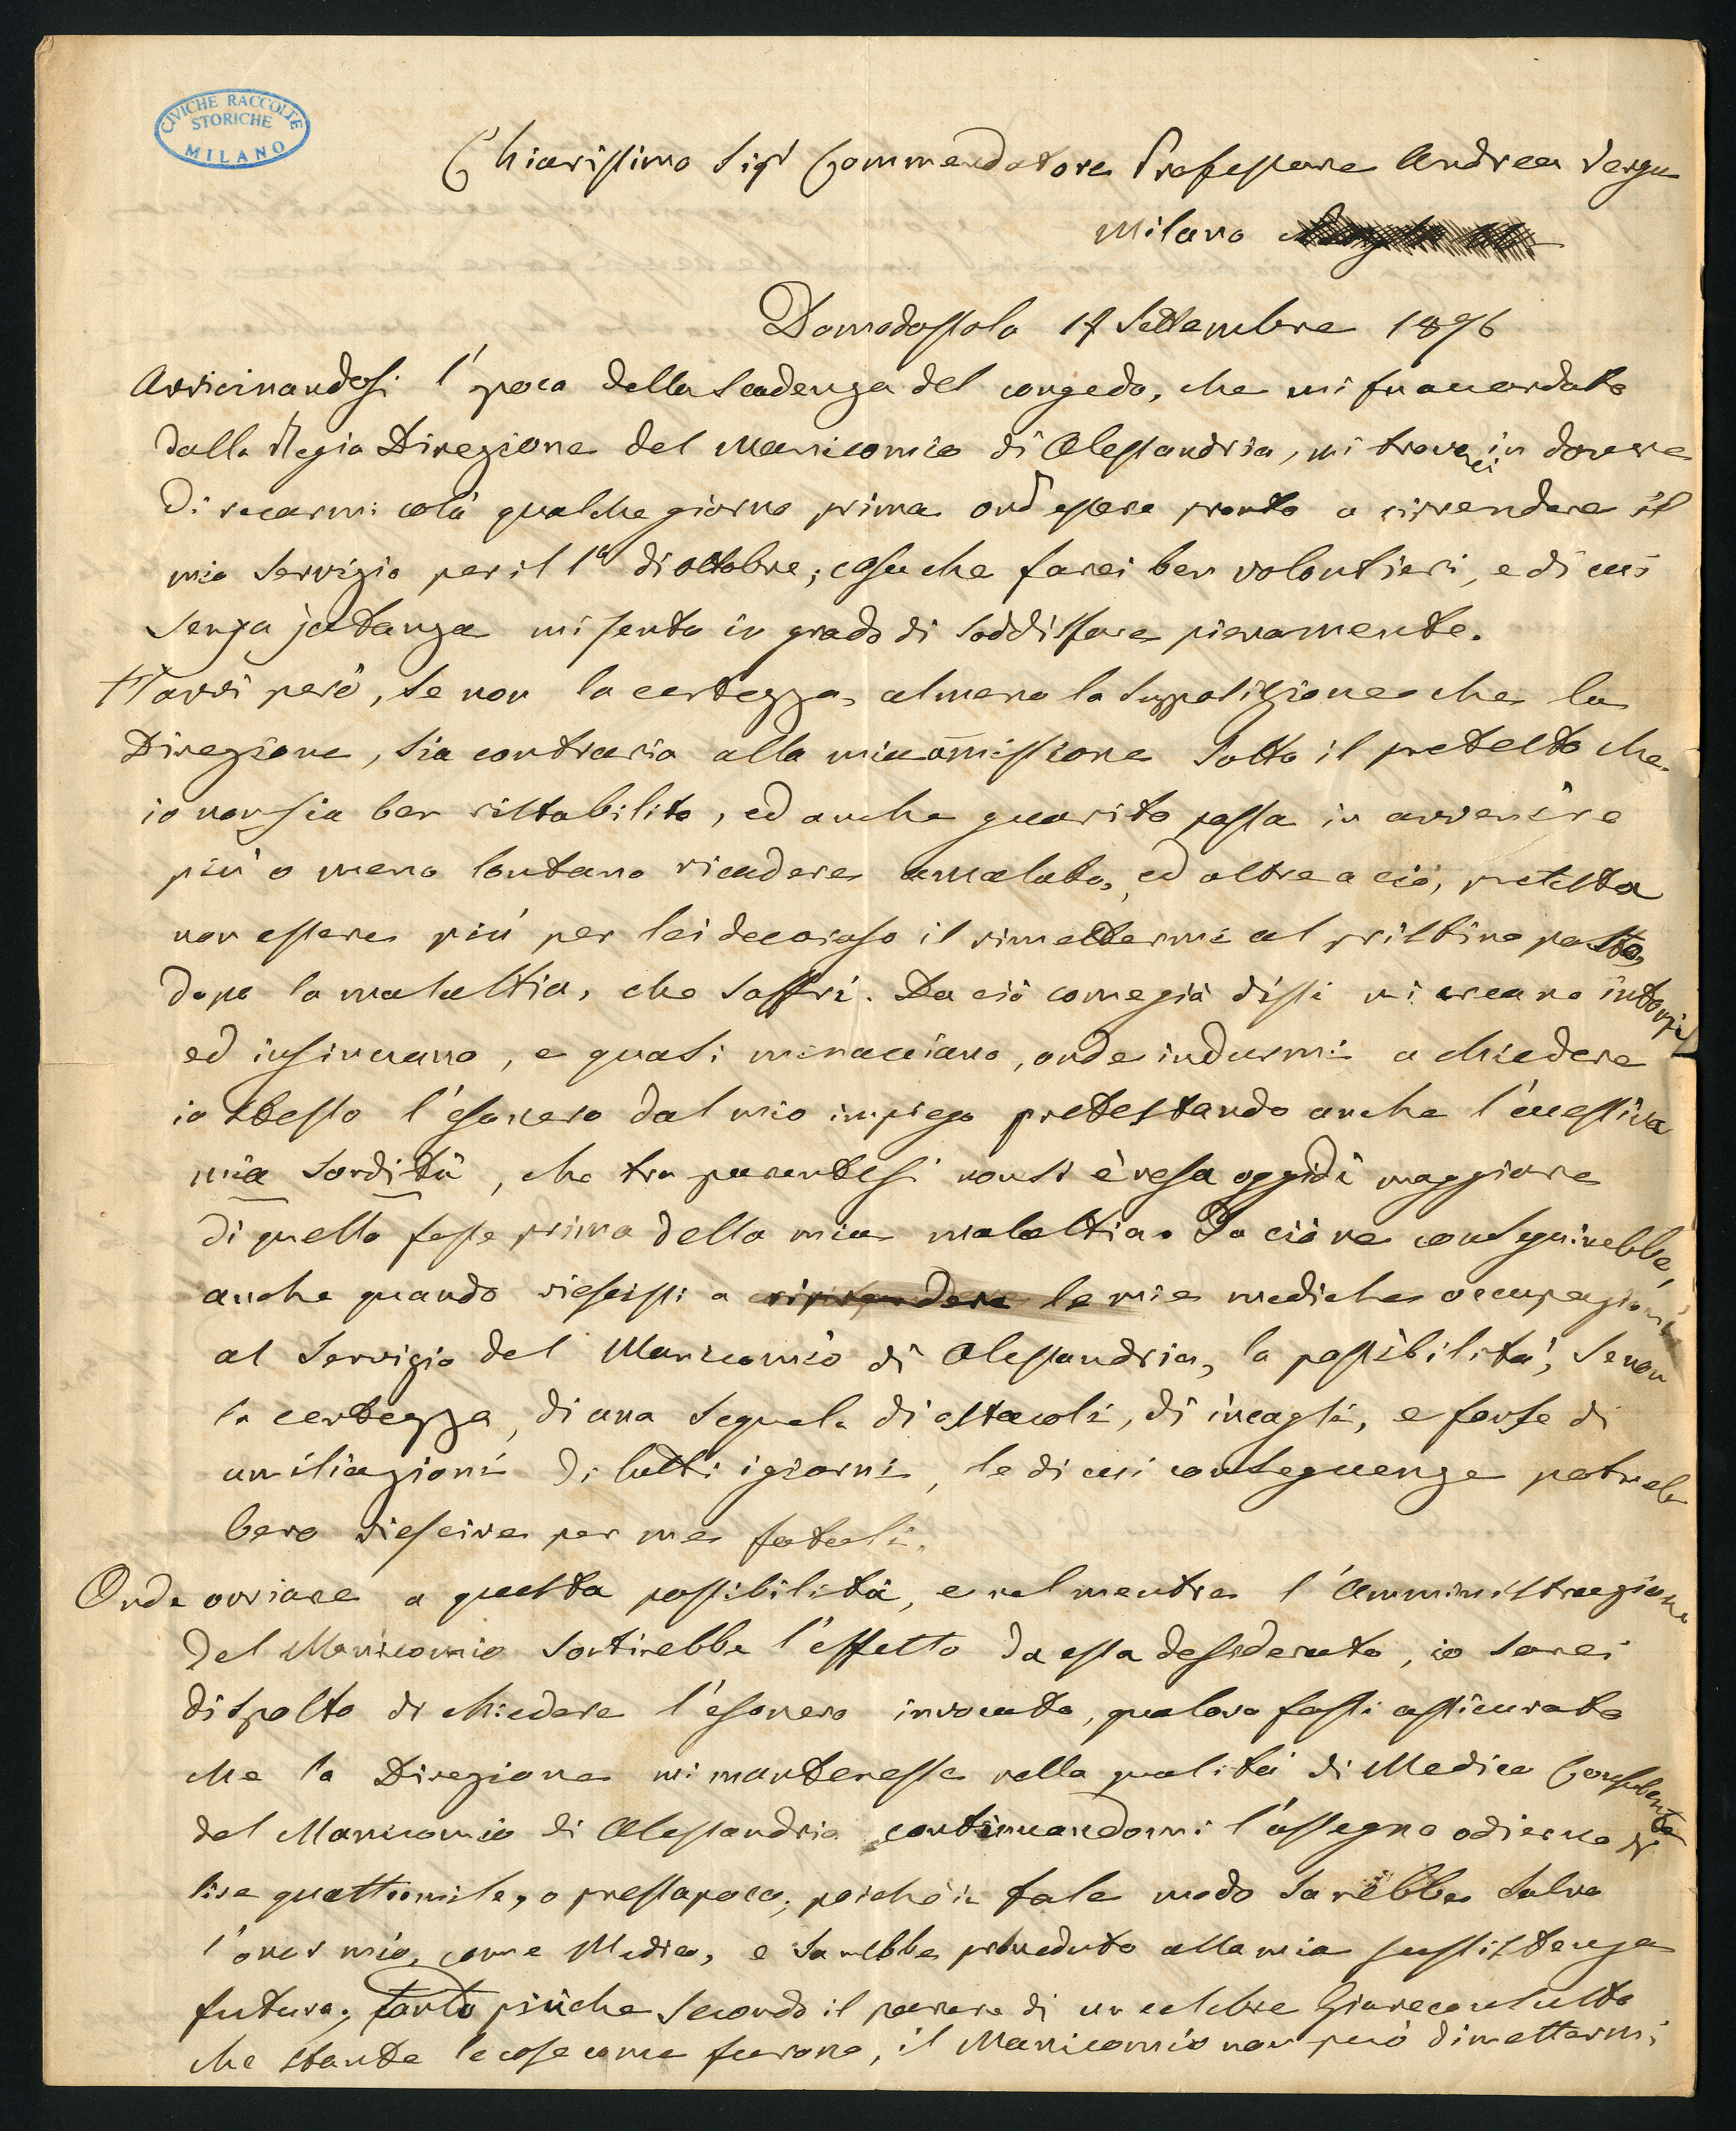 CIVICHE RACCOLTE
STORICHE
MILANO
Chiarissimo Sigr Commendatore Professore Andrea Verga
Milano
Domodossola 17 Settembre 1876
Avvicinandosi l'epoca della scadenza del congedo, che mi fu accordato
dalla Regia Direzione del Manicomio di Alessandria, mi troverei in dovere
di recarmi colà qualche giorno prima ond'essere pronto a riprendere il
mio servizio per il 1o di ottobre; cosa che farei ben volontieri, e di cui
senza jatanza mi sento in grado di soddisfare pienamente.
Havvi però, se non la certezza, almeno la supposizione che la
Direzione, sia contraria alla mia omissione sotto il pretesto che
io non sia ben ristabilito, ed anche guarito possa in avvenire
più o meno lontano ricadere amalato, ed oltre a ciò, pretesta
non essere più per lei decoroso il rimettermi al pristino posto
dopo la malattia, che soffrì. Da ciò come già dissi mi creano intoppi
ed insinuano, e quasi minacciano, onde indurmi a chiedere
io stesso l'esonero dal mio impiego pretestando anche l'eccessiva
mia sordità, che tra parentesi non si è resa oggidì maggiore
di quello fosse prima della mia malattia. Da ciò ne conseguirebbe,
anche quando riescissi a riprendere le mie mediche occupazioni
al servizio del Manicomio di Alessandria, la possibilità, se non
la certezza, di una sequela di ostacoli, di incagli, e forse di
umiliazioni di tutti i giorni, le di cui conseguenze potreb
bero riescire per me fatali.
Onde ovviare a questa possibilità, e nel mentre l'Amministrazione
del Manicomio sortirebbe l'effetto da essa desiderato, io sarei
disposto di chiedere l'esonero invocato, qualora fossi assicurato
che la Direzione mi mantenesse nella qualità di Medico Consulente
del Manicomio di Alessandria continuandomi l'assegno odierno di
lire quattromile, o pressapoco; poichè in tale modo sarebbe salvo
l'onor mio, come Medico, e sarebbe proveduto alla mia sussistenza
futura; tanto più che secondo il parere di un celebre Giureconsulto
che stante le cose come furono, il Manicomio non può dimettermi